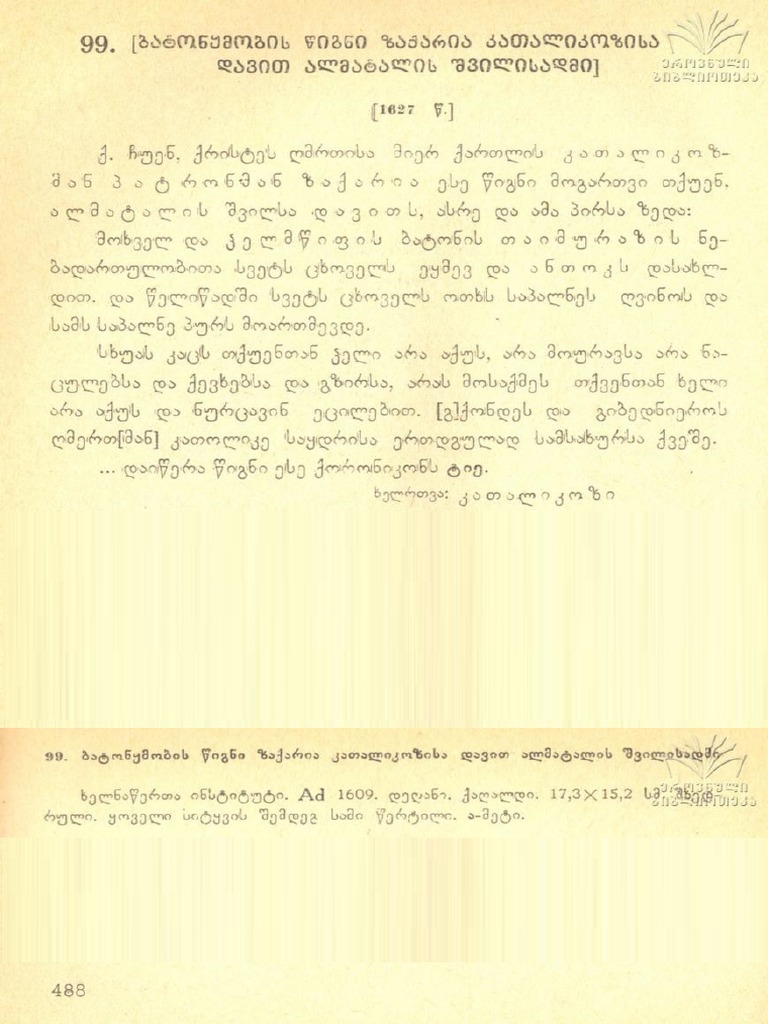 99. [ბატონყმობის წიგნი ზაქარია კათალიკოზისა
დავით ალმატალის შვილისადმი]
ეროვნული
ბიბლიოთეკა
[1627 წ.]
ქ. ჩუენ, ქრისტეს ღმრთისა მიერ ქართლის კათალიკოზ-
მან პატრონმან ზაქარია ესე წიგნი მოგართვი თქუენ,
ალმატალის შვილსა დავითს, ასრე და ამა პირსა ზედა:
მოხველ და ჴელმწიფის ბატონის თაიმურაზის ნე-
ბადართულობითა სვეტს ცხოველს ეყმევ და ანთოკს დასახლ-
დით. და წელიწადში სვეტს ცხოველს ოთხს საპალნეს ღვინოს და
სამს საპალნე პურს მოართმევდე.
სხუას კაცს თქუენთან ჴელი არა აქუს, არა მოურავსა არა ნა-
ცულებსა და ქევხებსა და გზირსა, არას მოსაქმეს თქვენთან ხელი
არა აქუს და ნურცავინ ეცილებით. [გ]ქონდეს და გიბედნიეროს
ღმერთ[მან] კათოლიკე საყდრისა ერთდგულად სამსახურსა ქვეშე.
... დაიწერა წიგნი ესე ქორონიკონს ტიე.
ხელრთვა: კათალიკოზი
99. ბატონყმობის წიგნი ზაქარია კათალიკოზისა დავით ალმატალის შვილისადმი
ხელნაწერთა ინსტიტუტი. Ad 1609. დედანი. ქაღალდი. 17,3×15,2 სმ. მხედ-
რული. ყოველი სიტყვის შემდეგ სამი წერტილი. ა-მეტი.
ეროვნული
ბიბლიოთეკა
488